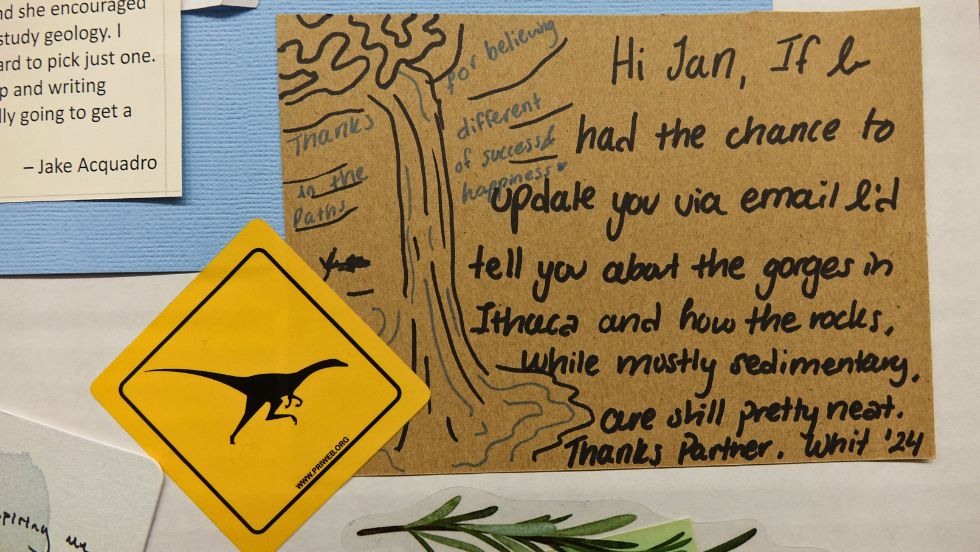 nd she encouraged
study geology. I
ard to pick just one.
p and writing
lly going to get a
– Jake Acquadro
Thanks
in the
Paths
for believing
different
of success &
happiness
Hi Jan, If I
had the chance to
update you via email I'd
tell you about the gorges in
Ithaca and how the rocks,
while mostly sedimentary,
are still pretty neat.
Thanks Partner. Whit '24
WWW.PRIWEB.ORG
piring